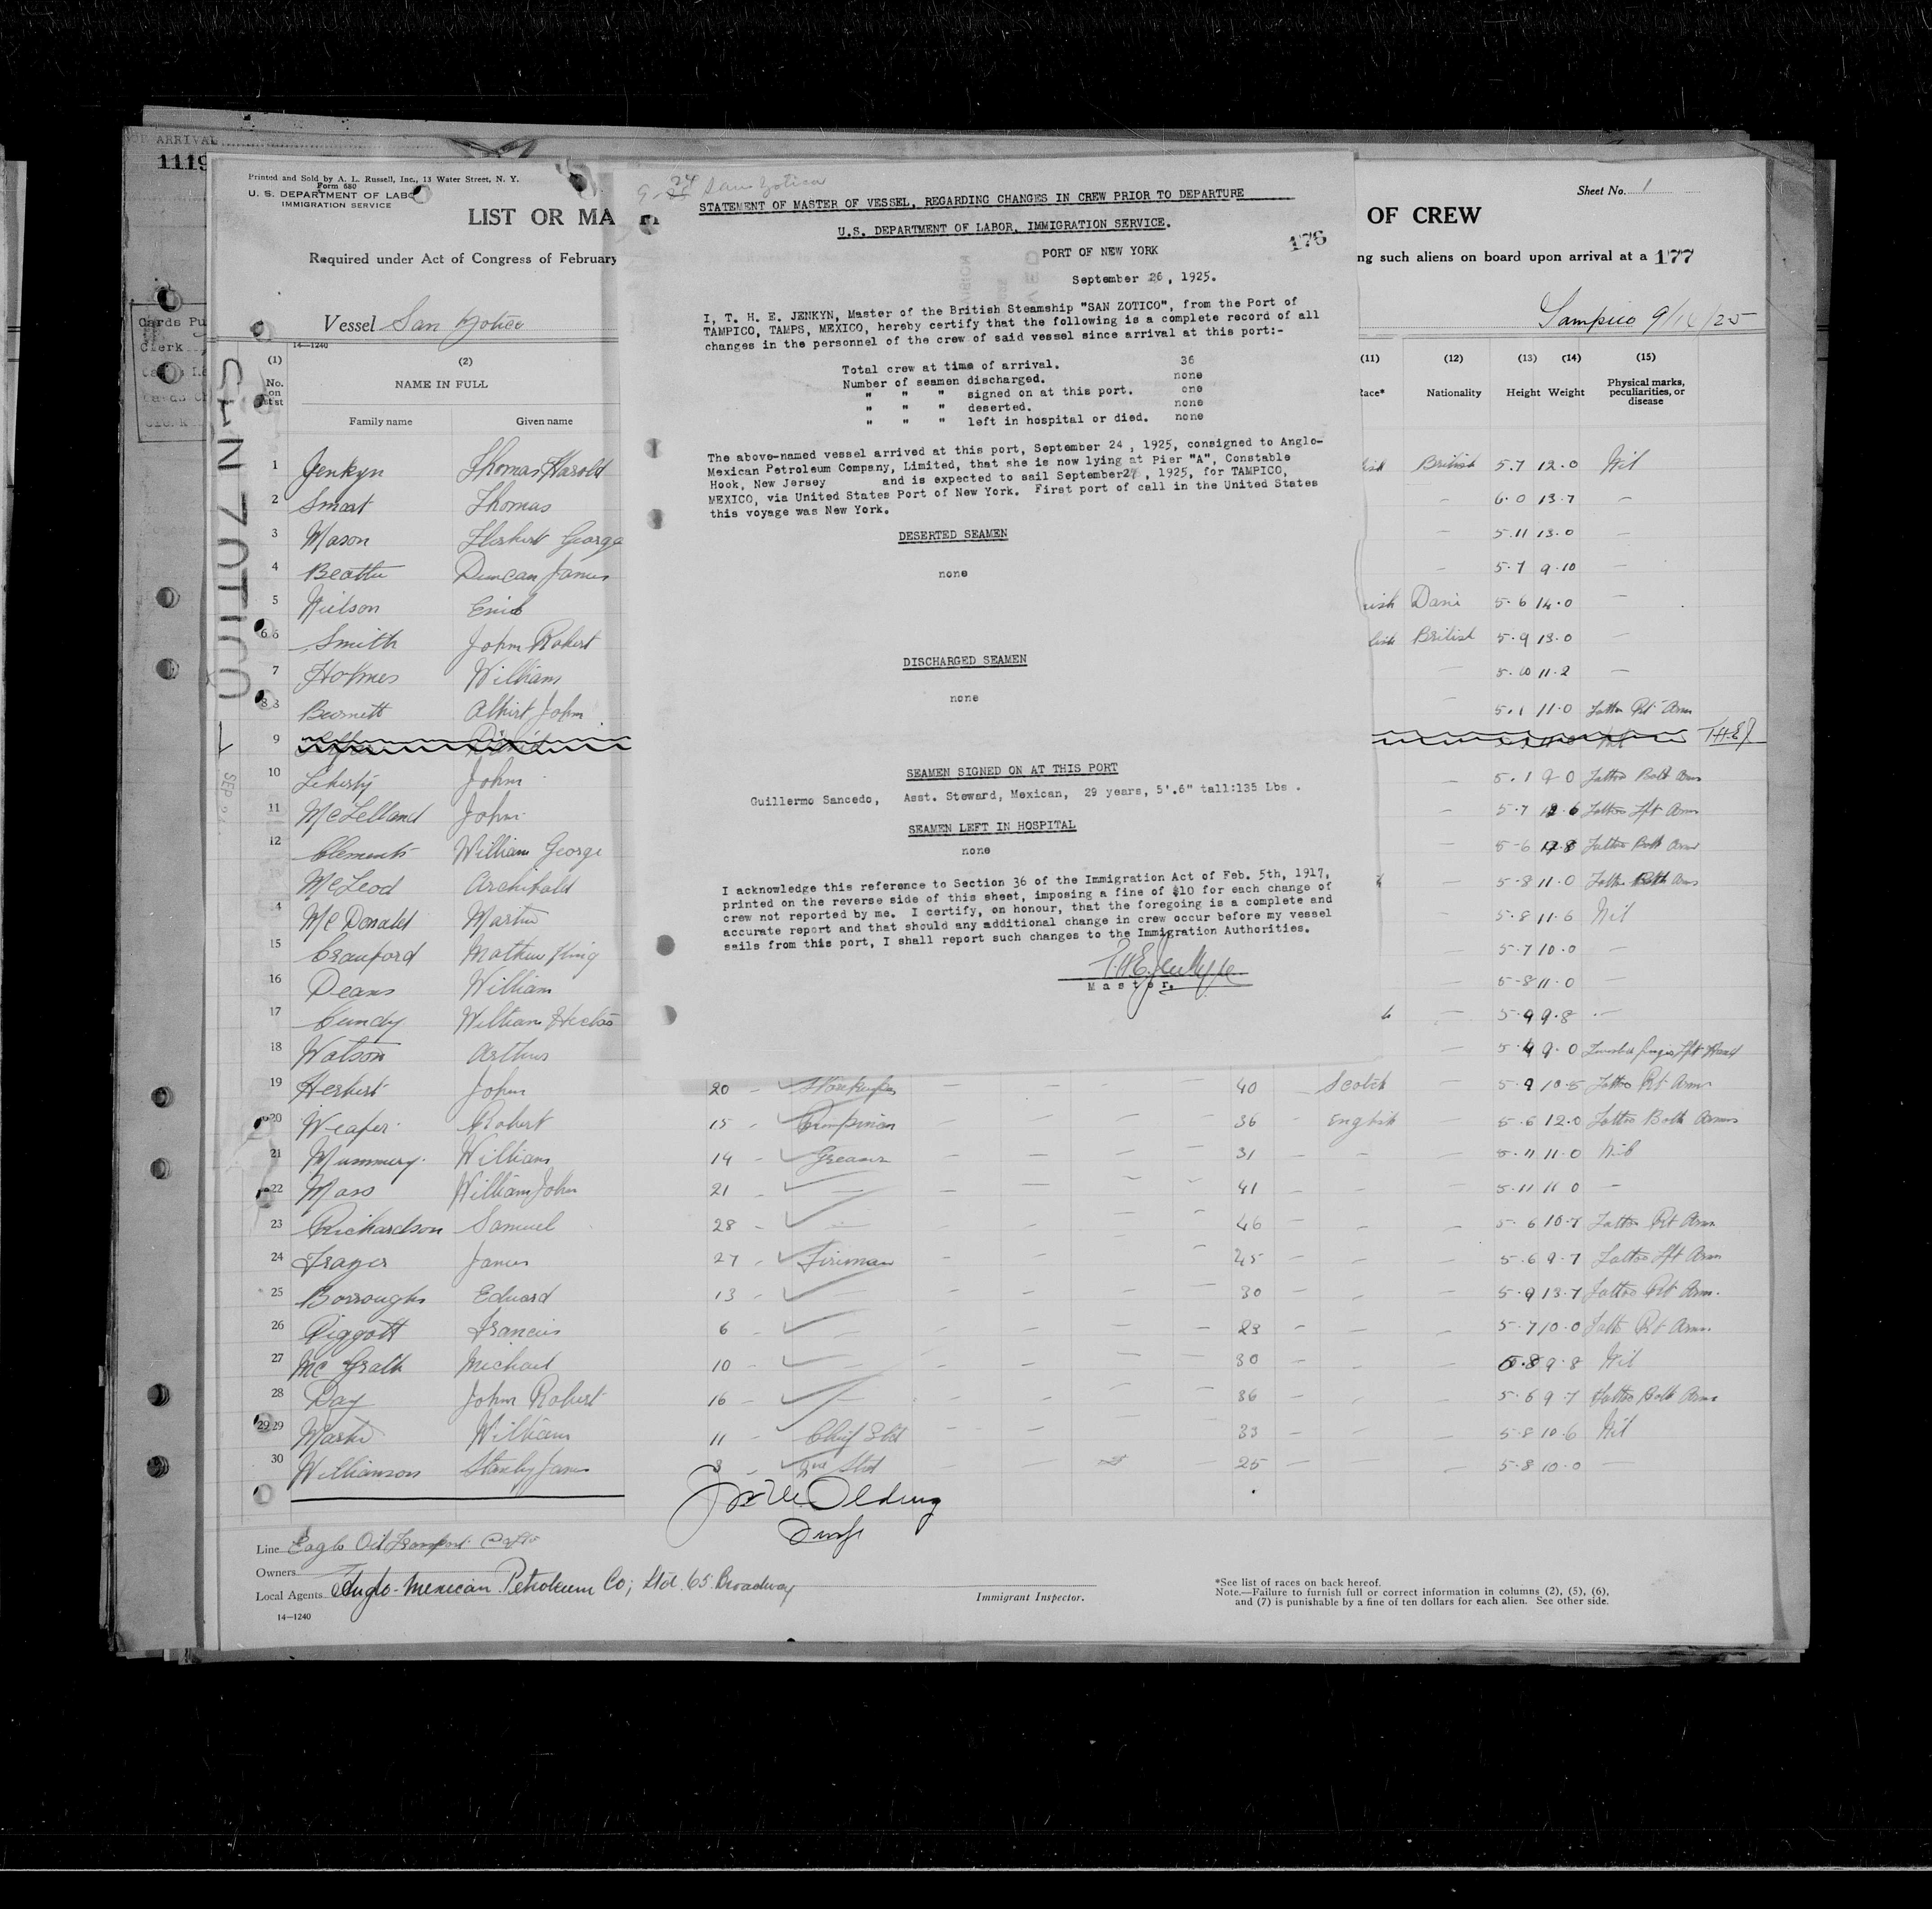 OF ARRIVAL
1119
Cards Pu
Clerk
Printed and Sold by A. L. Russell, Inc., 13 Water Street, N. Y.
Form 680
U. S. DEPARTMENT OF LABO
IMMIGRATION SERVICE
LIST OR MA
Required under Act of Congress of February
Vessel San Zotico
14—1240
(1) (2)
No. on list NAME IN FULL
Family name Given name
SAN ZOTICO
SEP
1 Jenkyn Thomas Harold
2 Smart Thomas
3 Mason Herbert George
4 Beattie Duncan James
5 Nielson
6 Smith John Robert
7 Holmes William
8 Burnett Albert John
9 David
10 John
11 McLelland John
12 Clements William George
McLeod Archibald
4 McDonald Martin
15 Cranford Mathew King
16 Deans William
17 Cundy William
18 Watson Arthur
19 Herbert John
20 Robert
21 Mummery William
22 Mass William John
23 Richardson Samuel
24 Frazer James
25 Borroughs Edward
26 Piggott Francis
27 McGrath Michael
28 Day John Robert
29 William
30 Williamson Stanley James
9-24 San Zotico
STATEMENT OF MASTER OF VESSEL, REGARDING CHANGES IN CREW PRIOR TO DEPARTURE
U.S. DEPARTMENT OF LABOR, IMMIGRATION SERVICE.
PORT OF NEW YORK
176
September 26, 1925.
I, T. H. E. JENKYN, Master of the British Steamship "SAN ZOTICO", from the Port of
TAMPICO, TAMPS, MEXICO, hereby certify that the following is a complete record of all
changes in the personnel of the crew of said vessel since arrival at this port:-
Total crew at time of arrival. 36
Number of seamen discharged. none
" " " signed on at this port. one
" " " deserted. none
" " " left in hospital or died. none
The above-named vessel arrived at this port, September 24 , 1925, consigned to Anglo-
Mexican Petroleum Company, Limited, that she is now lying at Pier "A", Constable
Hook, New Jersey and is expected to sail September , 1925, for TAMPICO,
MEXICO, via United States Port of New York. First port of call in the United States
this voyage was New York.
DESERTED SEAMEN
none
DISCHARGED SEAMEN
none
SEAMEN SIGNED ON AT THIS PORT
Guillermo Sancedo, Asst. Steward, Mexican, 29 years, 5'.6" tall:135 Lbs .
SEAMEN LEFT IN HOSPITAL
none
I acknowledge this reference to Section 36 of the Immigration Act of Feb. 5th, 1917,
printed on the reverse side of this sheet, imposing a fine of $10 for each change of
crew not reported by me. I certify, on honour, that the foregoing is a complete and
accurate report and that should any additional change in crew occur before my vessel
sails from this port, I shall report such changes to the Immigration Authorities.
T.H.E. Jenkyn
Master.
Sheet No. 1
OF CREW
ng such aliens on board upon arrival at a 177
Tampico 9/16/25
(11) (12) (13) (14) (15)
Race* Nationality Height Weight Physical marks, peculiarities, or disease
lish British 5.7 12.0 Nil
— 6.0 13.7 —
— 5.11 13.0 —
— 5.7 9.10 —
nish Dane 5.6 14.0 —
lish British 5.9 13.0 —
— 5.10 11.2 —
— 5.1 11.0 Tattoo Rt Arm
T.H.E.J.
— 5.1 9 0 Tattoo Both Arms
— 5.7 12.6 Tattoo Lft Arm
— 5-6 Tattoo Both Arms
— 5-8 11.0 Tattoo Both Arms
— 5.8 11.6 Nil
— 5.7 10.0 —
— 5-8 11.0 —
— 5.9 9.8 —
— 5.4 9.0 finger Lft Hand
20 — Storekeeper — — — — 40 — Scotch — 5.9 10.5 Tattoo Rt Arm
15 — Pumpman — — — — 36 — English — 5.6 12.0 Tattoo Both Arms
14 — Greaser — — — — 31 — — — 5.11 11.0 Nil
21 — — — — — — 41 — — — 5.11 11 0 —
28 — — — — — — 46 — — — 5.6 10.7 Tattoo Rt Arm
27 — Fireman — — — — 45 — — — 5.6 9.7 Tattoo Lft Arm
13 — — — — — — 30 — — — 5.9 13.7 Tattoo Rt Arm.
6 — — — — — — 23 — — — 5.7 10.0 Tattoo Rt Arm.
10 — — — — — — 30 — — — 5.8 9.8 Nil
16 — — — — — — 36 — — — 5.6 9.7 Tattoo Both Arms
11 — Chief Std — — — — 33 — — — 5.8 10.6 Nil
3 — 2nd Std — — — 25 — — — 5.8 10.0 —
Olding
Line Eagle Oil Transport Co Ltd
Owners
Local Agents Anglo-Mexican Petroleum Co; Ltd. 65 Broadway
14—1240
Immigrant Inspector.
*See list of races on back hereof.
Note.—Failure to furnish full or correct information in columns (2), (5), (6),
and (7) is punishable by a fine of ten dollars for each alien. See other side.